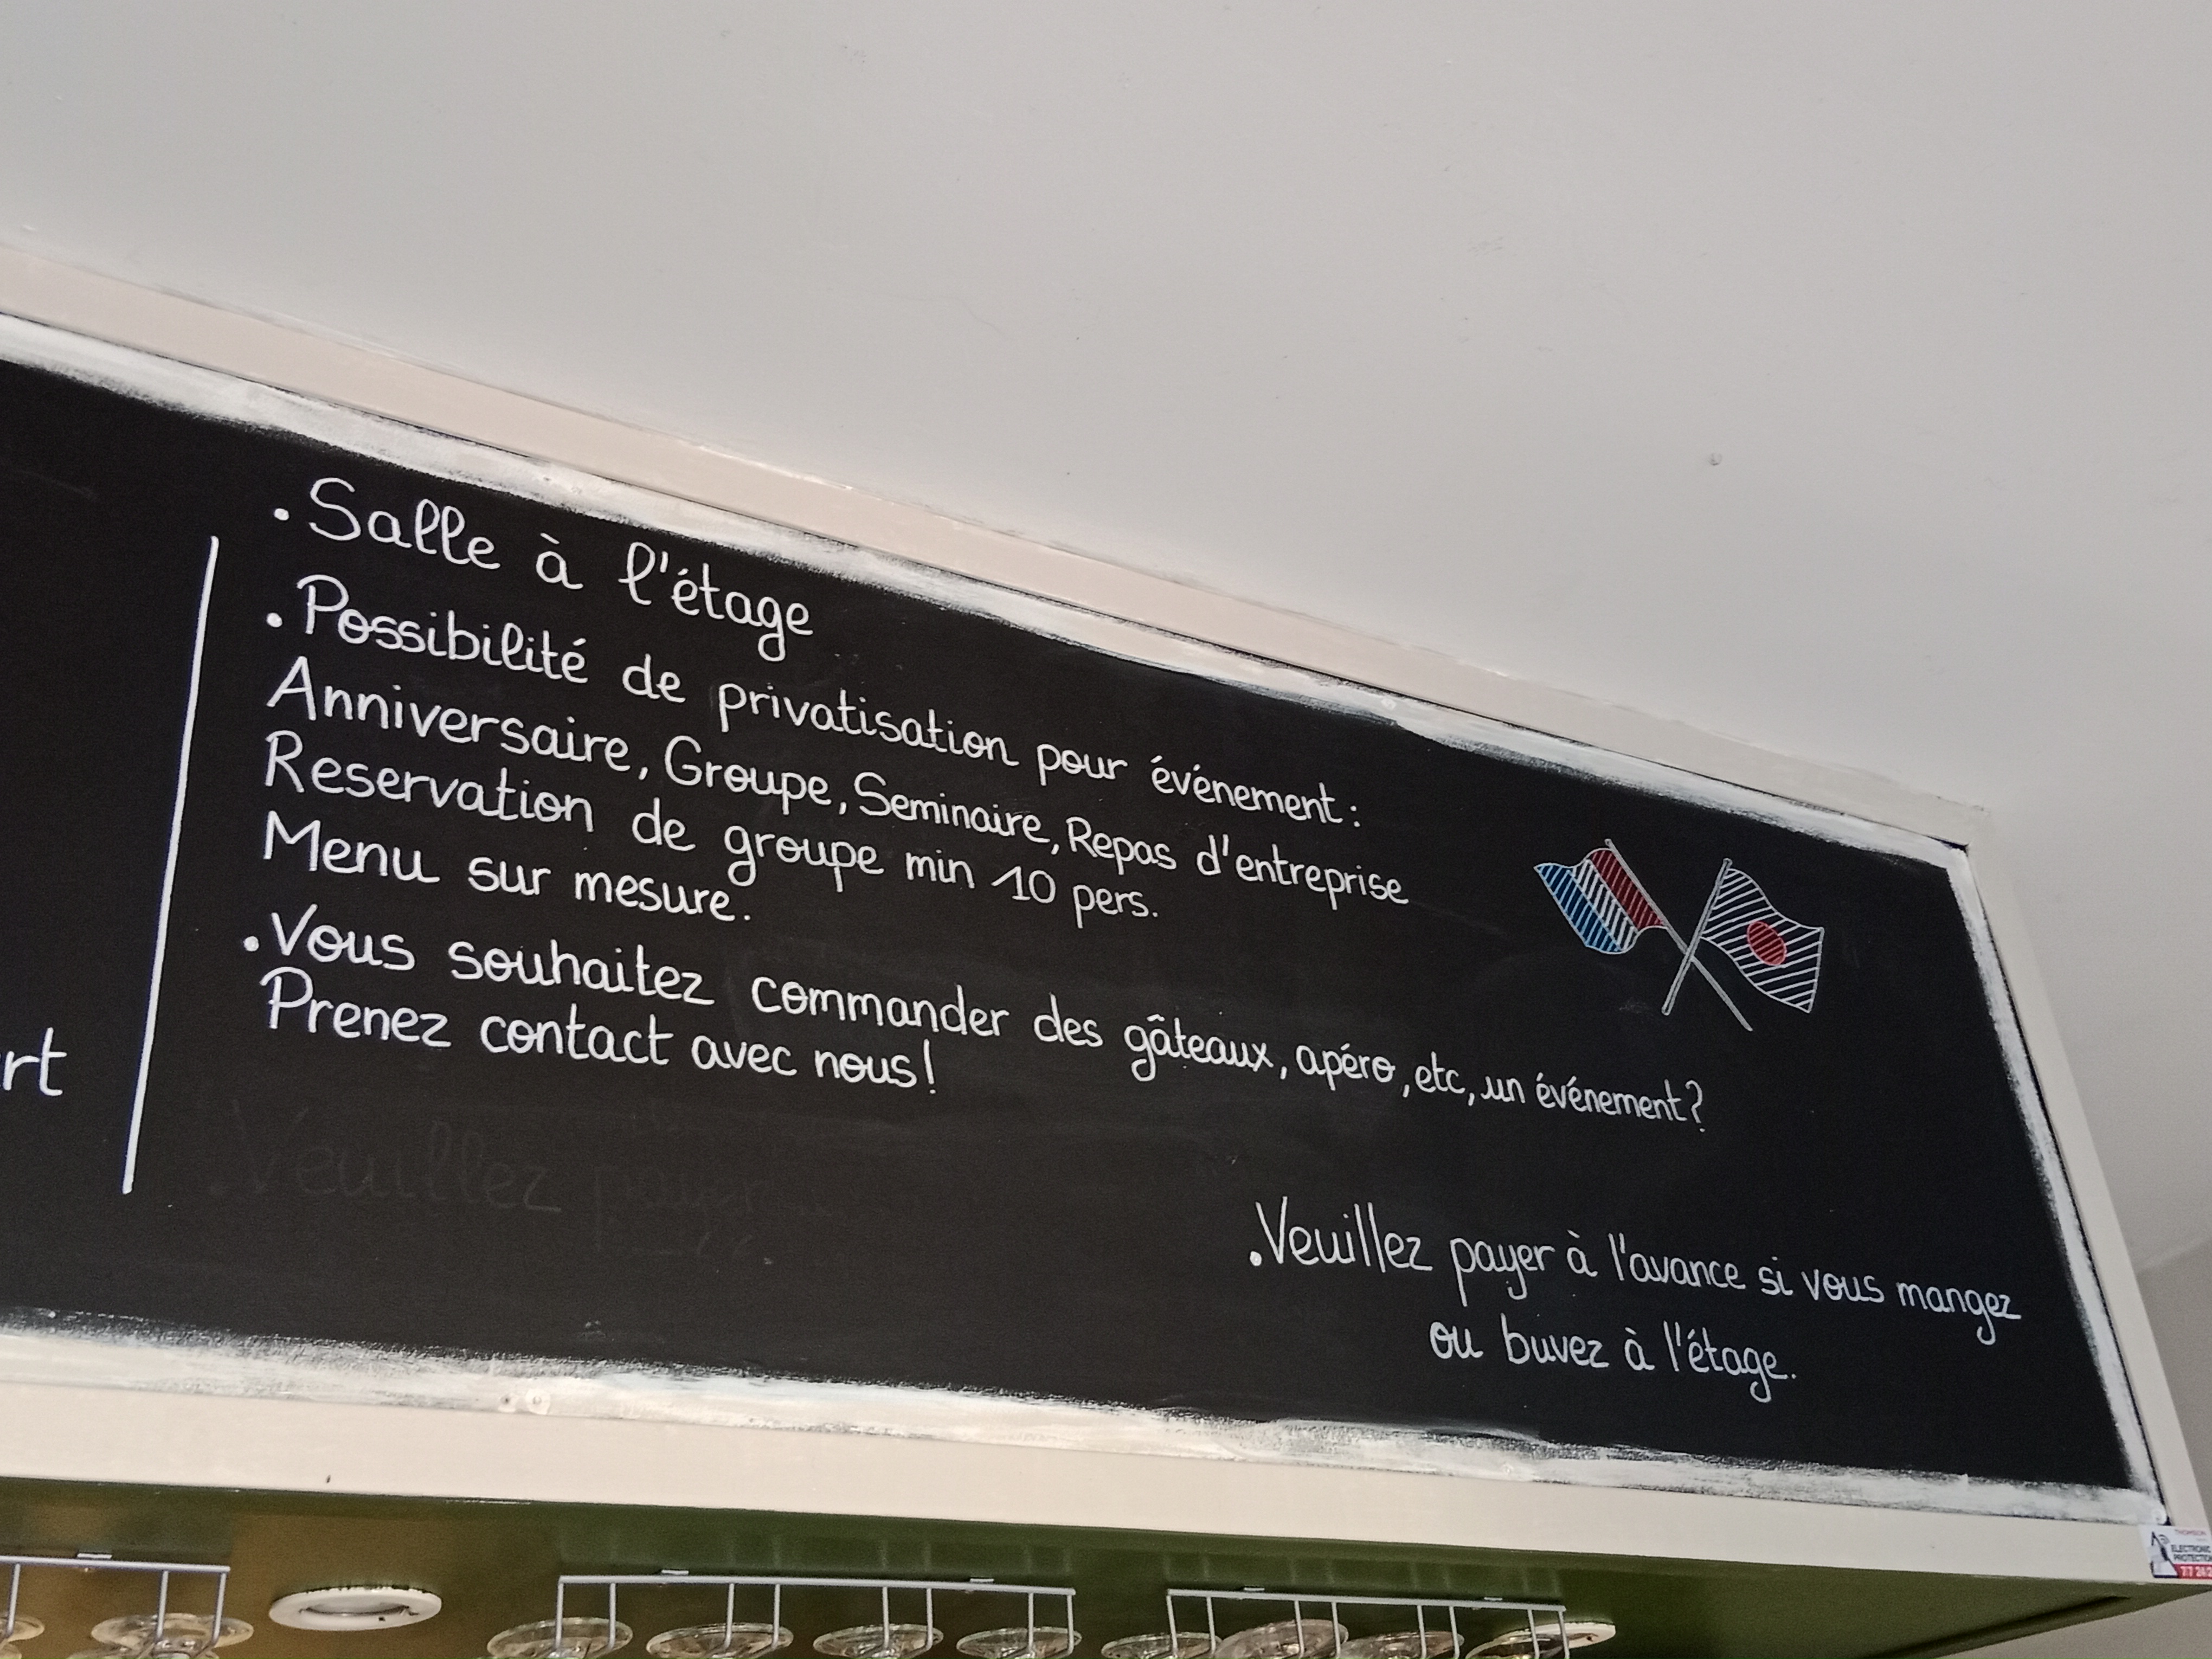 . Salle à l'étage
. Possibilité de privatisation pour événement :
Anniversaire, Groupe, Seminaire, Repas d'entreprise
Reservation de groupe min 10 pers.
Menu sur mesure.
. Vous souhaitez commander des gâteaux, apéro, etc, un événement?
Prenez contact avec nous!
Veuillez payer
. Veuillez payer à l'avance si vous mangez
ou buvez à l'étage.
rt
ELECTRONIC